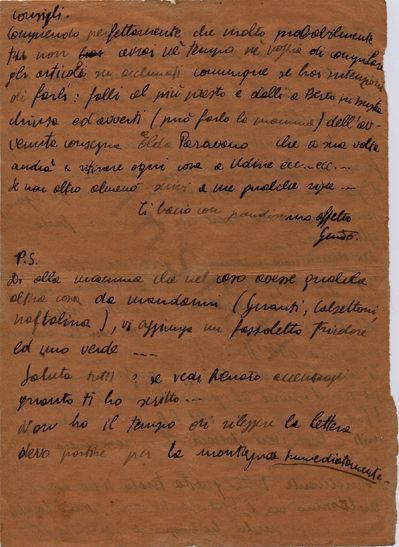 consigli.
Comprendo perfettamente che molto probabilmente
tu non avrai nè tempo ne voglia di compilare
gli articoli su accennati comunque se hai intenzione
di farli: falli al più presto e dalli a Berto in busta
chiusa ed avverti (può farlo la mamma) dell'av-
venuta consegna Elda Paravano che a sua volta
andrà a ritirare ogni cosa a Udine ecc... ecc...
Se non altro almeno scrivi a me qualche riga ---
ti bacio con grandissimo affetto
P.S.
Di alla mamma che nel caso avesse qualche
altra cosa da mandarmi (Guanti, Calzettoni,
naftalina), vi aggiunga un fazzoletto tricolore
ed uno verde ---
Saluta tutti e se vedi Renato accennagli
quanto ti ho scritto ---
Non ho il tempo di rileggere la lettera
devo partire per la montagna immediatamente -